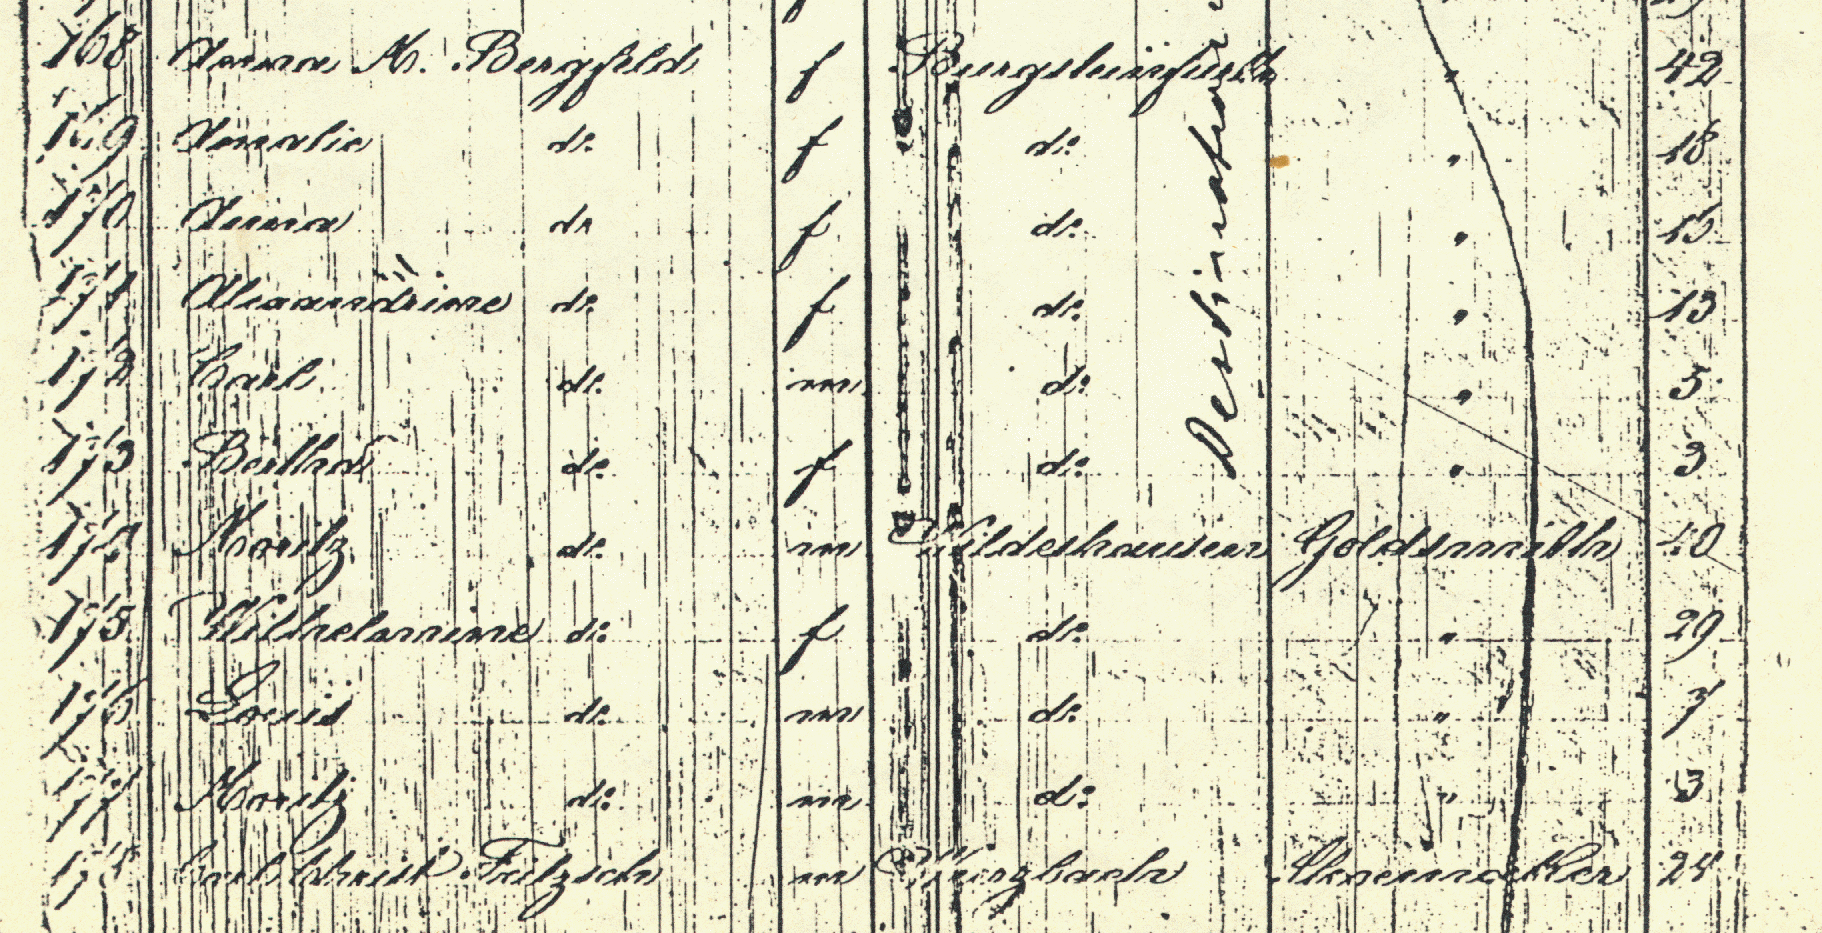 168 Anna M. Bergfeld f Burgsteinfurth " 42
169 Amalie do. f do. " 18
170 Anna do f do. " 15
171 Alexandrine do. f do. " 13
172 Carl do. m do. " 5
173 Bertha do. f do. " 3
174 Moritz do. m Wildeshausen Goldsmith 40
175 Wilhelmine do. f do. " 29
176 Louis do. m do. " 7
177 Moritz do. m do. " 3
178 Carl Christ Fritzsch m Shoemakker 24
Destination